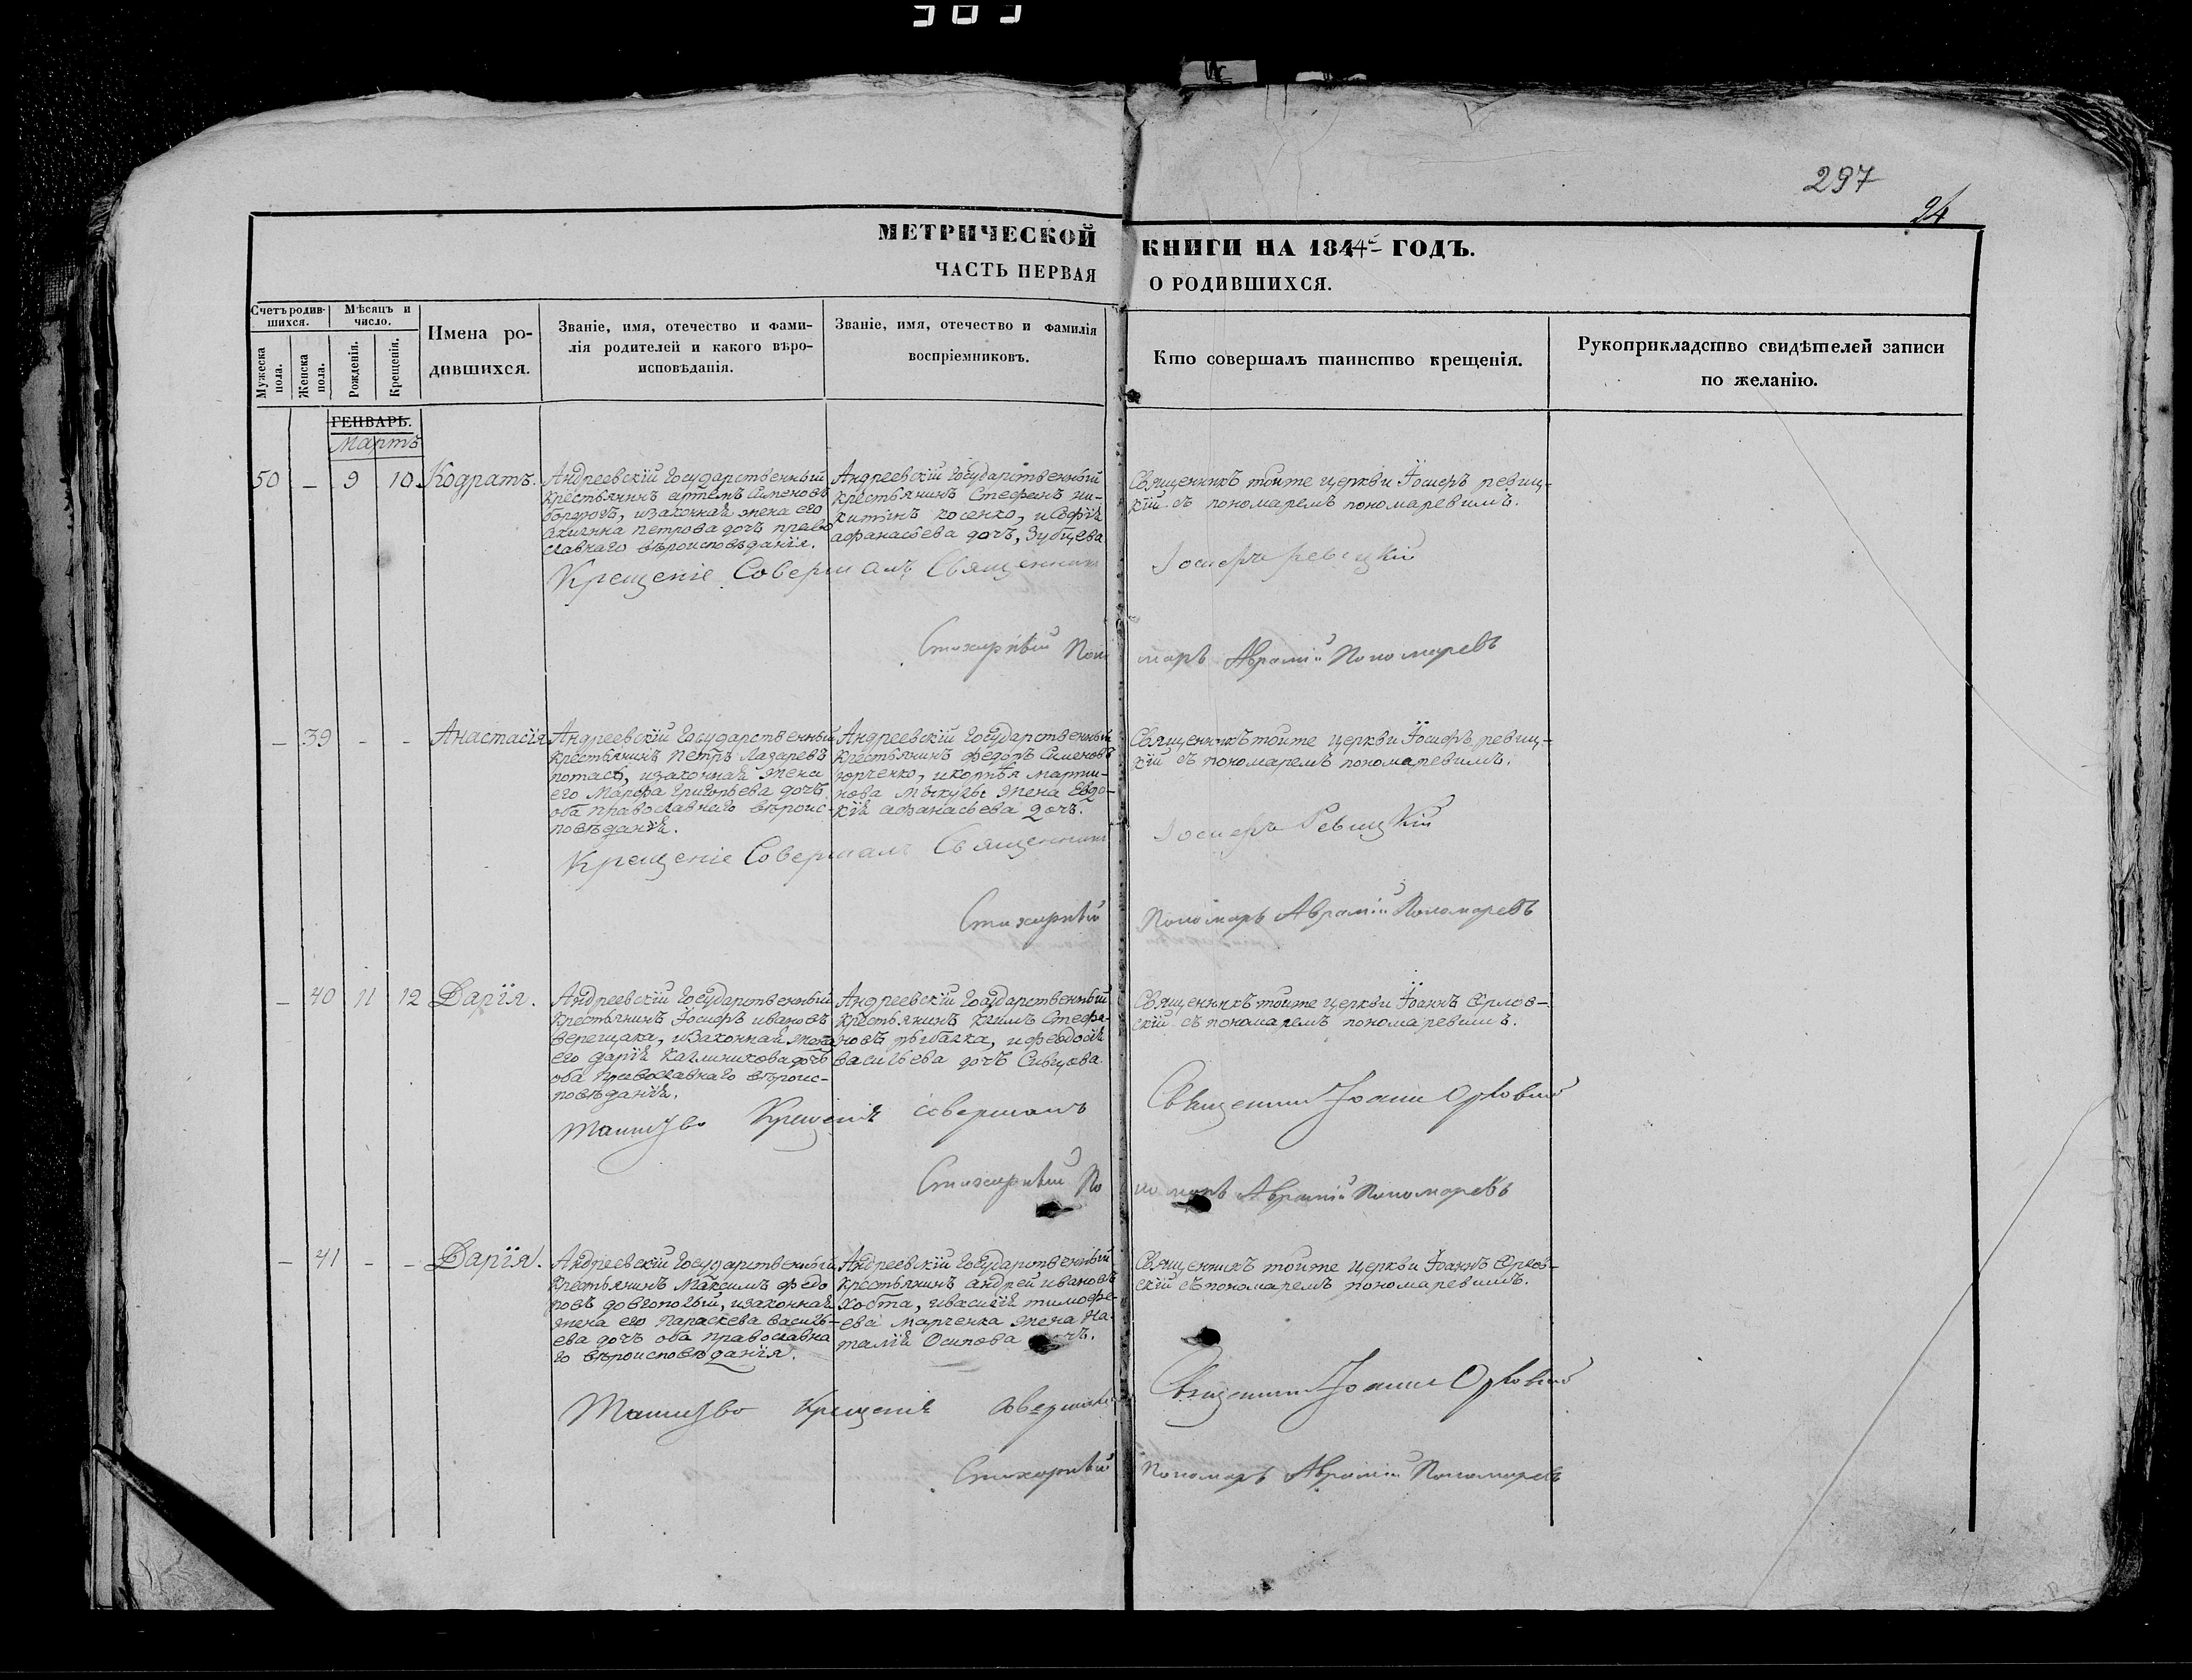 297
24
МЕТРИЧЕСКОЙ КНИГИ НА 1844й ГОДЪ.
ЧАСТЬ ПЕРВАЯ О РОДИВШИХСЯ.
Счетъ родив-
шихся.
Мужеска пола.
Женска пола.
Мѣсяцъ и
число.
Рожденія.
Крещенія.
Имена ро-
дившихся.
Званіе, имя, отечество и фами-
лія родителей и какого вѣро-
исповѣданія.
Званіе, имя, отечество и фамилія
воспріемниковъ.
Кто совершалъ таинство крещенія.
Рукоприкладство свидѣтелей записи
по желанію.
ГЕНВАРЬ.
Мартъ
50 — 9 10 Кодратъ.
Андреевскій государственный
крестьянинъ артемъ Сименовъ
изаконная жена его
петрова дочъ право
славнаго вѣроисповѣданія.
Андреевскій государственный
крестьянинъ Стефанъ ни-
китинъ косенко, и Софія
афанасьева дочъ, Зубцева
Священникъ тойте церкви Іосифъ ревиц-
кій съ пономаремъ пономаревимъ.
Крещеніе Совершалъ Священникъ Іосифъ ревицкій
Стихарный Пономарь Аврамій Пономаревъ
— 39 - - Анастасія
Андреевскій государственный
крестьянинъ Петръ Лазаревъ
потасъ, изаконная жена
его Марфа григорьева дочъ
оба православнаго вѣроис-
повѣданія.
Андреевскій государственный
крестьянинъ федоръ Сименовъ
юрченко, и марти-
нова жена Евдо-
кія афанасьева дочъ.
Священникъ тойте церкви Іосифъ ревиц-
кій съ пономаремъ пономаревимъ.
Крещеніе Совершалъ Священникъ Іосифъ Ревицкій
Стихарный Пономарь Аврамій Пономаревъ
— 40 11 12 Дарія.
Андреевскій государственный
крестьянинъ Іосифъ ивановъ
верещака, изаконная жена
его дарія калиникова дочъ
оба православнаго вѣроис-
повѣданія.
Андреевскій государственный
крестьянинъ климъ Стефа-
новъ рыбалка, и феодосія
васильева дочъ Сивцова
Священникъ тойте церкви Іоаннъ Орлов-
скій съ пономаремъ пономаревимъ.
Таинство Крещенія совершалъ Священникъ Іоаннъ Орловский
Стихарный Пономарь Аврамій Пономаревъ
— 41 - - Дарія.
Андреевскій государственный
крестьянинъ Максимъ федо
ровъ довгополый, изаконная
жена его Параскева василь-
ева дочъ оба православна
го вѣроисповѣданія.
Андреевскій государственный
крестьянинъ андрей ивановъ
хобта, ивасилія тимофе-
ева марченка жена На-
талія Осипова дочъ.
Священникъ тойте церкви Іоаннъ Орлов-
скій съ пономаремъ пономаревимъ.
Таинство Крещенія Совершалъ Священникъ Іоаннъ Орловский
Стихарный Пономарь Аврамій Пономаревъ